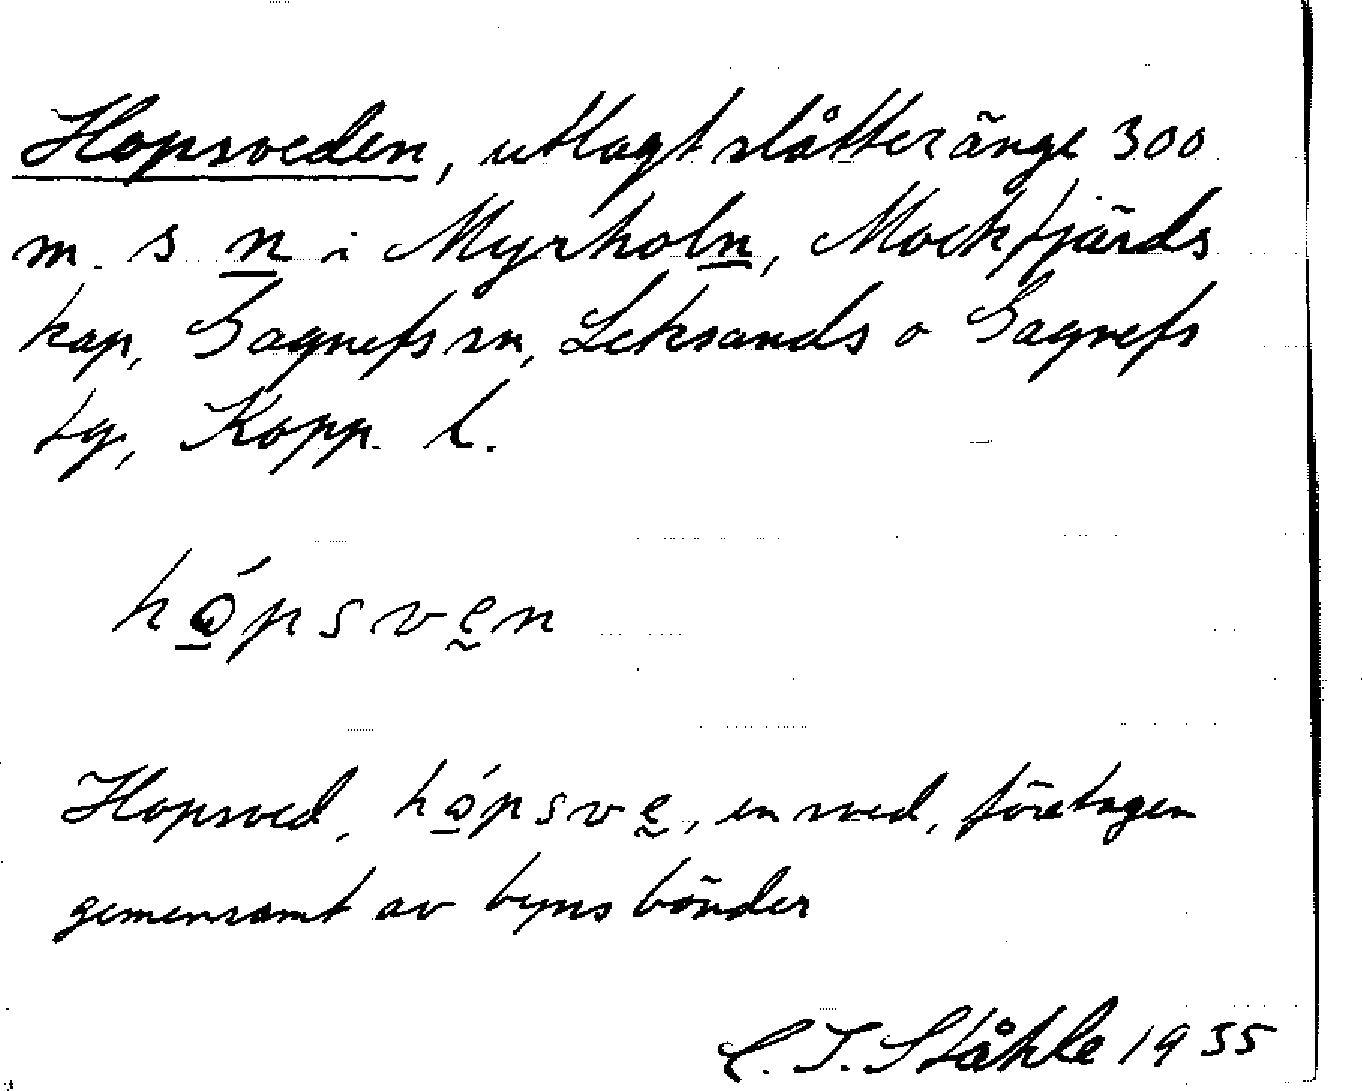 Hopsveden, utlagt slåtteränge 300
m. s n i Myrholn, Mockfjärds
kap, Gagnefs sn, Leksands o Gagnefs
tg, Kopp. l.
hǫ́psvḛn
Hopsved, hǫ́psvḛ, en sved, företagen
gemensamt av byns bönder
C. I. Ståhle 1935